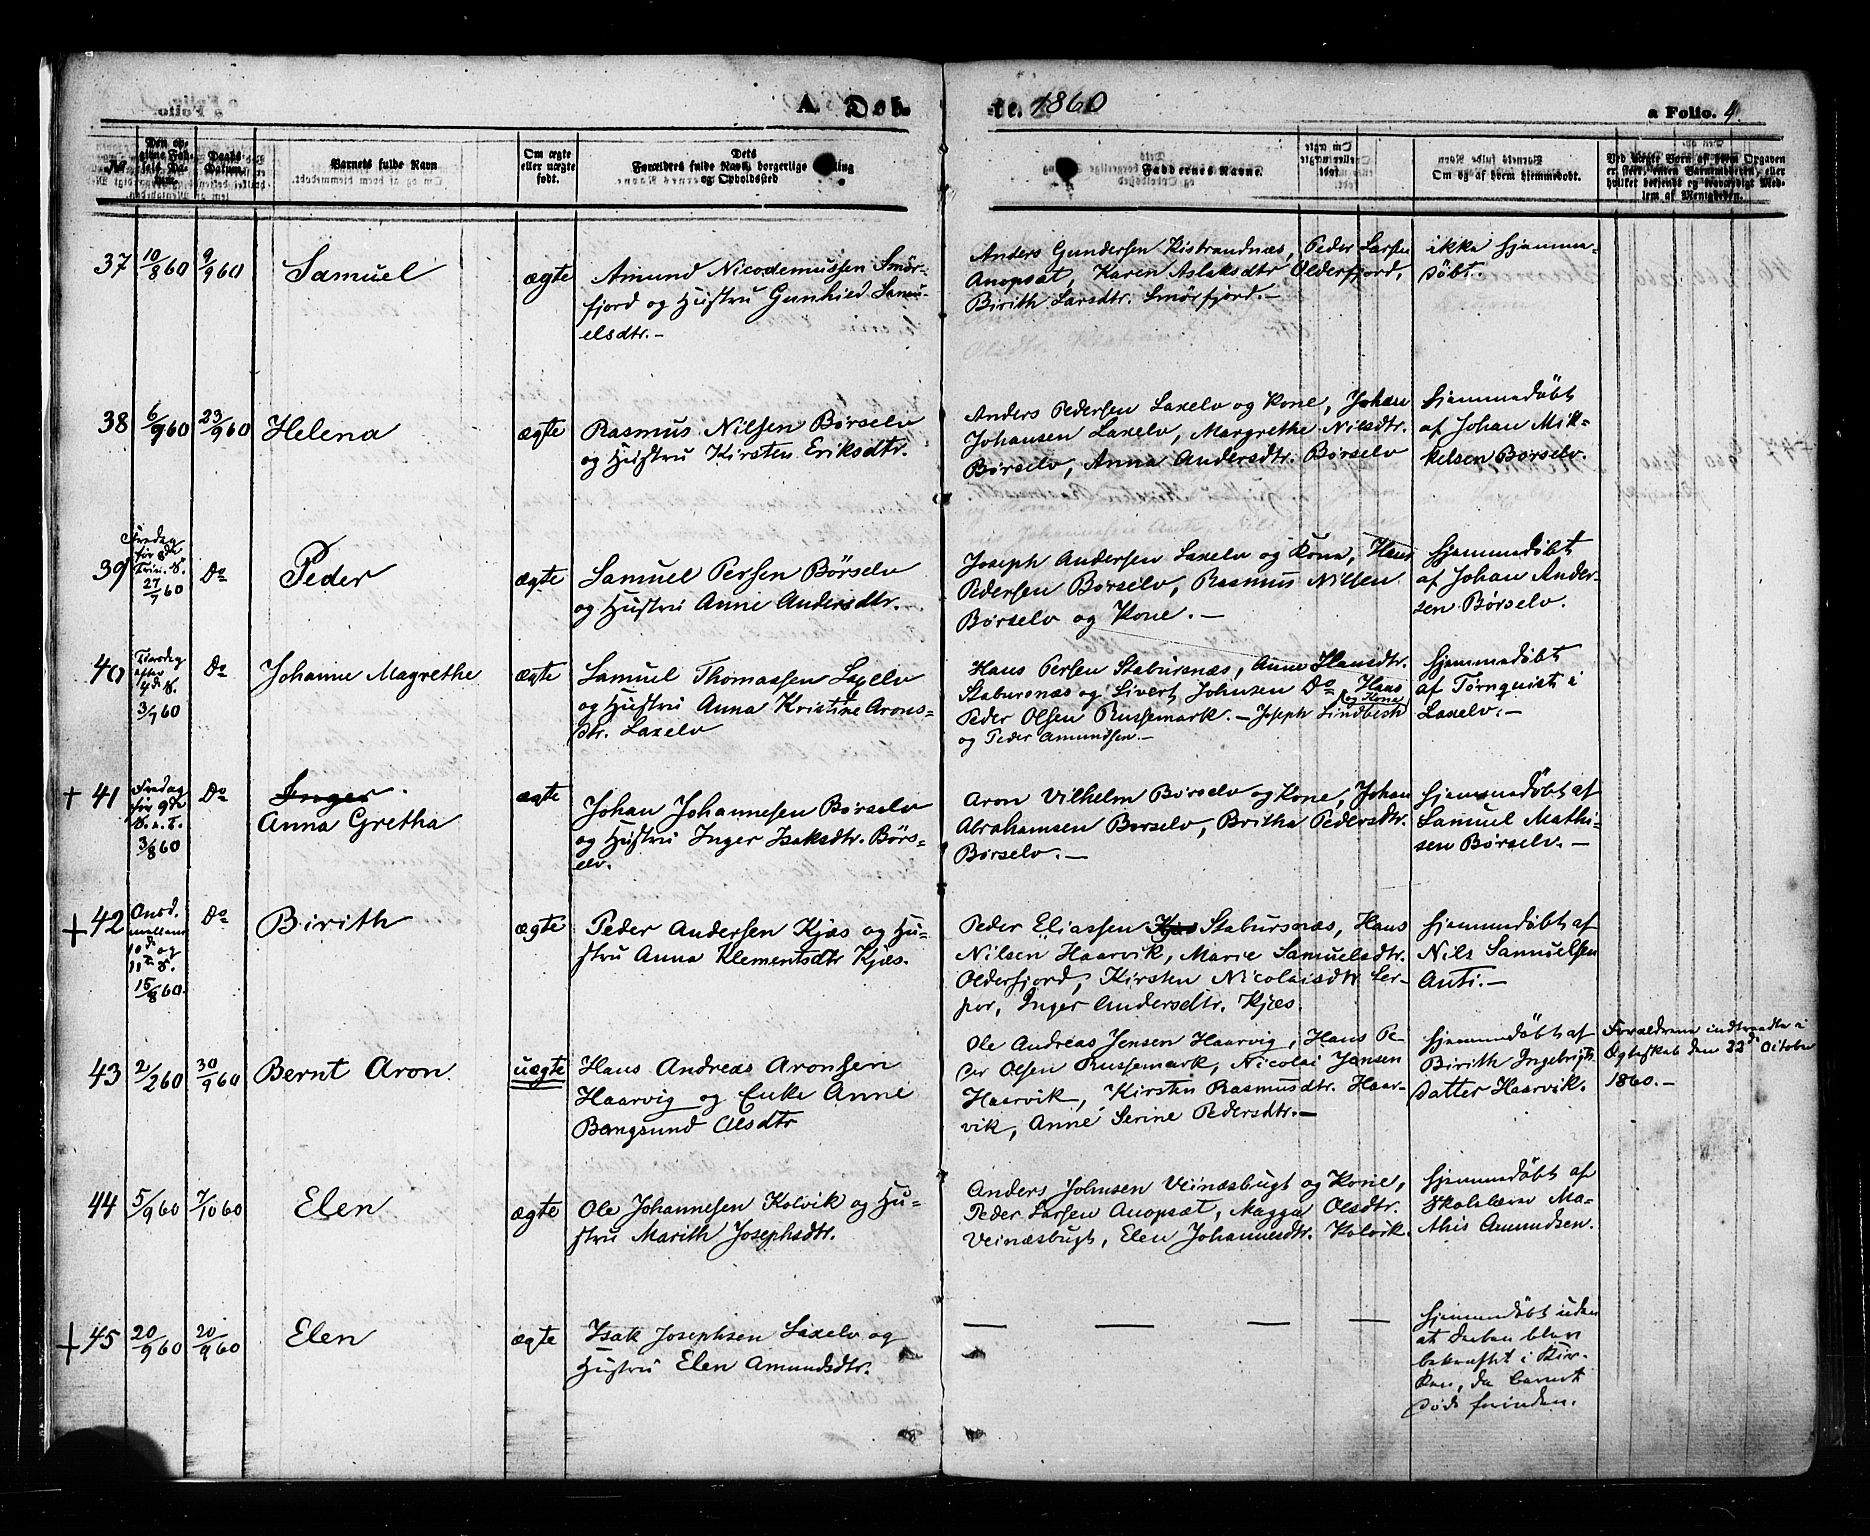 A Døb-
te. 1860
a Folio. 4.
No
Barnets fulde Navn
Om ægte
eller uægte
født.
Dets
Forældres fulde Navn, borgerlige Stilling
og Opholdssted
Faddernes Navne.
Om og af hvem hjemmedøbt.
37
10/8 60
9/9 60
Samuel
ægte
Amund Nicodemussen Smör-
fjord og Hustru Gunhild Samu-
elsdtr.-
Anders Gundersen Kistrandnæs, Peder Larsen
Anopsæt, Karen Aslaksdtr Olderfjord,
Birith Larsdtr. Smörfjord.-
ikke hjemme-
döbt.
38
6/9 60
23/9 60
Helena
ægte
Rasmus Nilsen Börselv
og Hustru Kirsten Eriksdtr.
Anders Pedersen Laxelv og Kone, Johan
Johansen Laxelv, Margrethe Nilsdtr.
Börselv, Anna Andersdtr. Börselv
hjemmedöbt
af Johan Mik-
kelsen Börselv.
39
Fredag
før 8de
Trin. S.
27/7 60
Do
Peder
ægte
Samuel Persen Börselv
og Hustru Anne Andersdtr.-
Joseph Andersen Laxelv og Kone, Hans
Pedersen Börselv, Rasmus Nilsen
Börselv og Kone.-
hjemmedöbt
af Johan Ander-
sen Börselv.
40
Tirsdag
efter
4de S.
3/7 60
Do
Johanne Magrethe
ægte
Samuel Thomassen Laxelv
og Hustru Anna Kristine Arons-
dtr. Laxelv
Hans Persen Stabursnæs, Anne Hansdtr.
Stabursnæs og Sivert Johnsen Do Hans
og Kone
Peder Olsen Russemark.- Joseph Lindbech
og Peder Amundsen.-
hjemmedöbt
af Törnquist i
Laxelv.-
+ 41
Fredag
før 9de
S. e. T.
3/8 60
Do
Inger.
Anna Gretha
ægte
Johan Johannesen Börselv
og Hustru Inger Isaksdtr. Börs-
elv.
Aron Vilhelm Börselv og Kone, Johan
Abrahamsen Börselv, Britha Pedersdtr.
Börselv.-
hjemmedöbt af
Samuel Mathi-
sen Börselv.-
+ 42
Onsd.
mellem
10de og
11te S.
15/8 60
Do
Birith
ægte
Peder Andersen Kjæs og Hu-
stru Anna Klementsdtr Kjæs.
Peder Eliassen Kjæs Stabursnæs, Hans
Nilsen Haarvik, Marie Samuelsdtr.
Olderfjord, Kirsten Nicolaisdtr Ler-
por, Inger Andersdtr. Kjæs.
hjemmedöbt af
Nils Samuelsen
Anti.-
43
2/2 60
30/9 60
Bernt Aron.
uægte
Hans Andreas Aronsen
Haarvig og Enke Anne
Bangsund Olsdtr
Ole Andreas Jensen Haarvig, Hans Pe-
der Olsen Russemark, Nicolai Jensen
Haarvik, Kirsten Rasmusdtr. Haar-
vik, Anne Serine Pedersdtr.-
hjemmedöbt af
Birith Ingebrigts
datter Haarvik.
Forældrene indtraadte i
Ægteskab den 22de October
1860.-
44
5/9 60
7/10 60
Elen
ægte
Ole Johannesen Kolvik og Hu-
stru Marith Josephsdtr.
Anders Johnsen Veinæsbugt og Kone,
Peder Larsen Anopsæt, Magga Olsdtr.
Veinæsbugt, Elen Johannesdtr. Kolvik.
hjemmedöbt af
Skolelærer Ma-
this Amundsen.
+ 45
20/9 60
20/9 60
Elen
ægte
Isak Josephsen Laxelv og
Hustru Elen Amundsdtr.
— — — —
hjemmedöbt uden
at Daaben blev
bekræftet i Kir-
ken, da barnet
döde forinden.